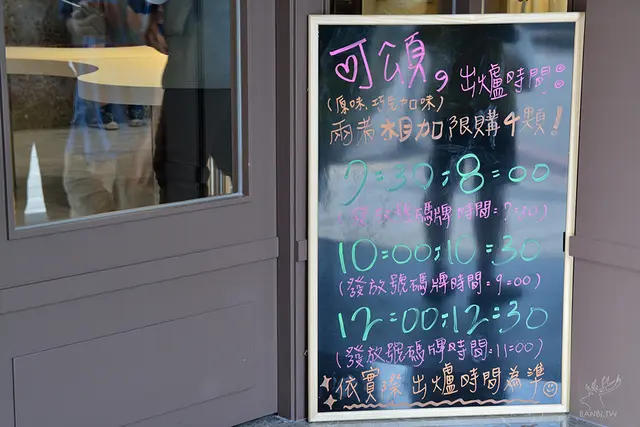 可頌, 出爐時間:
(原味、巧克力口味)
兩者相加限購4顆!
7:30; 8:00
(發放號碼牌時間:7:00)
10:00; 10:30
(發放號碼牌時間:9:00)
12:00; 12:30
(發放號碼牌時間:11:00)
依實際出爐時間為準
BANBI.TW